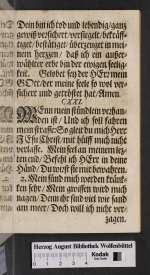 Dein bin ich tod und lebendig/ganz
gewiß versichert/versiegelt/bekräff-
tiget/bestätiget/überzeuget in mei-
nem hertzen/ daß ich ein außer-
wählter erbe bin der ewigen selig-
keit. Gelobet sey der HErr mein
GOtt/der meine seele so wol ver-
sichert und getröstet hat/Amen.
CXXI.
WEnn mein stündlein verhan-
den ist/ Und ich soll fahren
mein strasse/So gleit du mich Herr
JEsu Christ/mit hülff mich nicht
verlasse. Mein seel an meinem letz-
ten end/Befehl ich HErr in deine
Händ/Du wollst sie mir bewahren.
2. Mein sünd mich werden kränck-
ken sehr/Mein gewissen wird mich
nagen/Denn ihr sind viel wie sand
am meer/Doch will ich nicht ver-
zagen.
Herzog August Bibliothek Wolfenbüttel